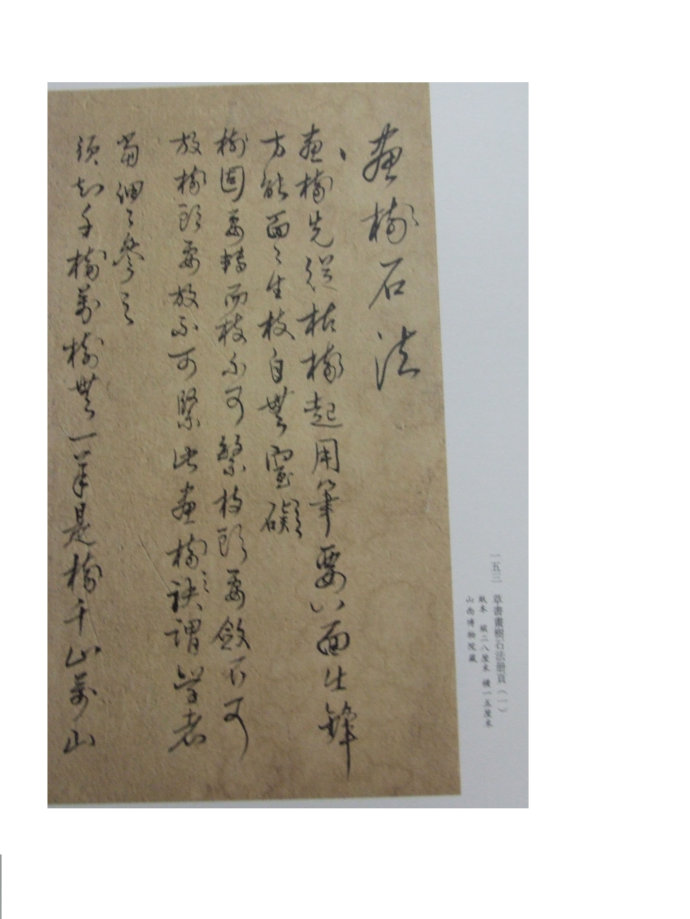 畫樹石法
畫樹先從枯樹起用筆要八面生鋒
方能面々生枝自無窒礙
樹固要轉而枝不可繁枝頭要斂不可
放樹頭要放不可緊此畫樹之訣謂學者
當細々參之
須知千樹萬樹無一筆是樹千山萬山
一五三 草書畫樹石法冊頁(一)
紙本 縱二八厘米 橫一五厘米
山西博物院藏